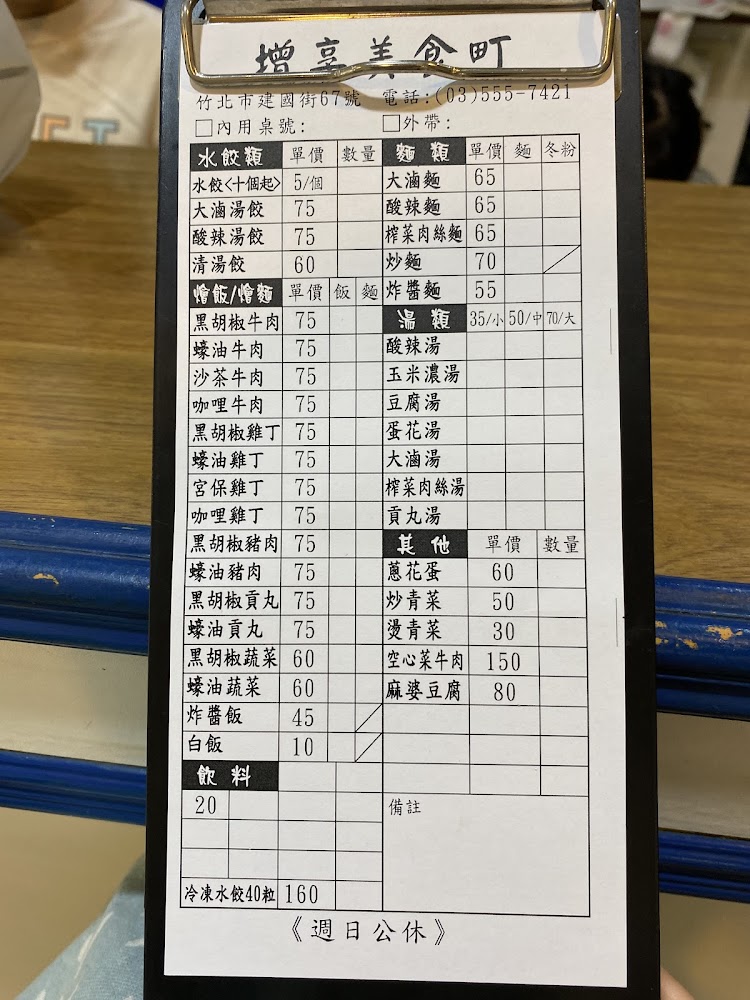 增享美食町
竹北市建國街67號 電話:(03)555-7421
□內用桌號: □外帶:
水餃類 單價 數量
水餃<十個起> 5/個
大滷湯餃 75
酸辣湯餃 75
清湯餃 60
燴飯/燴麵 單價 飯 麵
黑胡椒牛肉 75
蠔油牛肉 75
沙茶牛肉 75
咖哩牛肉 75
黑胡椒雞丁 75
蠔油雞丁 75
宮保雞丁 75
咖哩雞丁 75
黑胡椒豬肉 75
蠔油豬肉 75
黑胡椒貢丸 75
蠔油貢丸 75
黑胡椒蔬菜 60
蠔油蔬菜 60
炸醬飯 45
白飯 10
飲料
20
冷凍水餃40粒 160
麵類 單價 麵 冬粉
大滷麵 65
酸辣麵 65
榨菜肉絲麵 65
炒麵 70
炸醬麵 55
湯類 35/小 50/中 70/大
酸辣湯
玉米濃湯
豆腐湯
蛋花湯
大滷湯
榨菜肉絲湯
貢丸湯
其他 單價 數量
蔥花蛋 60
炒青菜 50
燙青菜 30
空心菜牛肉 150
麻婆豆腐 80
備註
《週日公休》